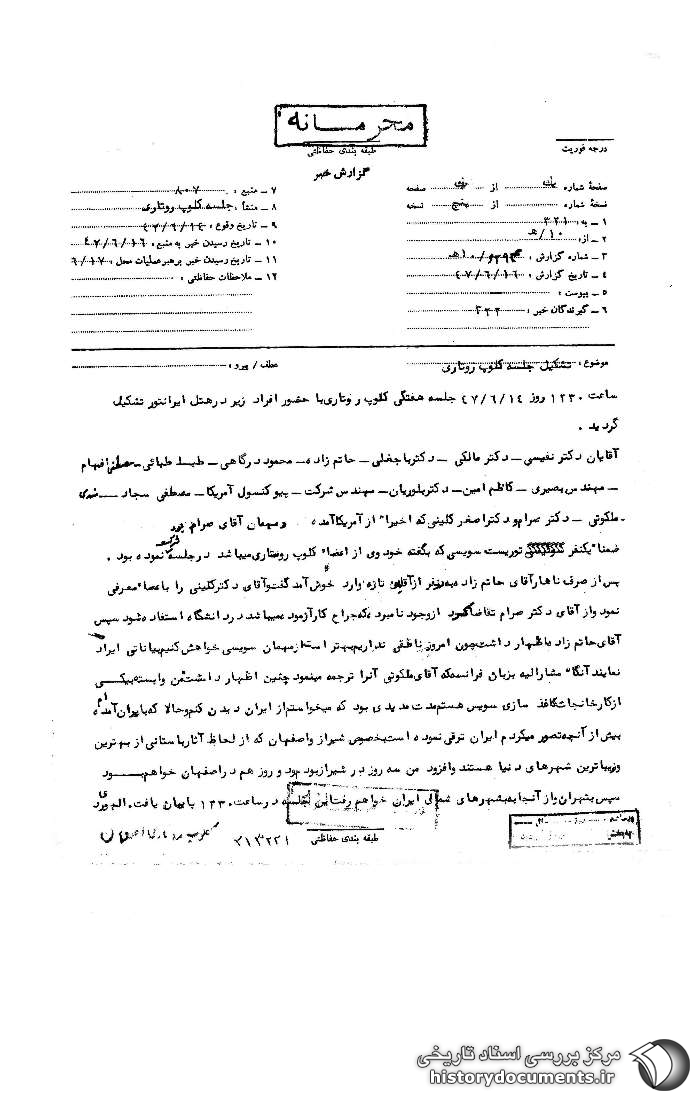 محرمانه
طبقه بندی حفاظتی
درجه فوریت
گزارش خبر
صفحهٔ شماره یک از یک صفحه
نسخهٔ شماره از پنج نسخه
۱ – به : ۳۲۱
۲ – از : ۱۰/هـ
۳ – شماره گزارش :
۴ – تاریخ گزارش : ۴۷/۶/۱۶
۵ – پیوست :
۶ – گیرندگان خبر : ۳۲۲
۷ – منبع : ۸۰۷
۸ – منشأ : جلسه کلوپ روتاری
۹ – تاریخ وقوع : ۴۷/۶/۱۴
۱۰ – تاریخ رسیدن خبر به منبع : ۴۷/۶/۱۶
۱۱ – تاریخ رسیدن خبر برهبر عملیات محل : ۶/۱۷
۱۲ – ملاحظات حفاظتی :
موضوع : تشکیل جلسه کلوپ روتاری
عطف / پیرو :
ساعت ۱۲۳۰ روز ۴۷/۶/۱۴ جلسه هفتگی کلوپ روتاری با حضور افراد زیر در هتل ایرانتور تشکیل
گردید .
آقایان دکتر نفیسی – دکتر مالکی – دکتر باجغلی – حاتم زاده – محمود درگاهی – طبائی – مصطفی افهام
– مهندس بصیری – کاظم امین – دکتر بلوریان – مهندس شرکت – پیو کنسول آمریکا – مصطفی سجاد
– ملکوتی – دکتر صرام و دکتر اصغر کلینی که اخیرا" از آمریکا آمده و میهمان آقای صرام بود
ضمنا" یکنفر توریست سویسی که بگفته خود وی از اعضاء کلوپ روتاری میباشد در جلسه شرکت نموده بود .
پس از صرف ناهار آقای حاتم زاده از تازه وارد خوش آمد گفت و آقای دکتر کلینی را باعضاء معرفی
نمود و از آقای دکتر صرام تقاضا نمود از وجود نامبرده که جراح کارآزموده میباشد در دانشگاه استفاده شود سپس
آقای حاتم زاده اظهار داشت چون امروز ناطقی نداریم بهتر است از میهمان سویسی خواهش کنیم بیاناتی ایراد
نمایند آنگاه مشارالیه بزبان فرانسه که آقای ملکوتی آنرا ترجمه مینمود چنین اظهار داشت من وابسته بیکی
از کارخانجات کاغذ سازی سویس هستم مدت مدیدی بود که میخواستم از ایران دیدن کنم و حالا که بایران آمده ام
بیش از آنچه تصور میکردم ایران ترقی نموده است بخصوص شیراز و اصفهان که از لحاظ آثار باستانی از بهترین
و زیباترین شهرهای دنیا هستند و افزود من سه روز در شیراز بودم و دو روز هم در اصفهان خواهم بود
سپس بتهران و از آنجا بشهرهای شمالی ایران خواهم رفت این جلسه در ساعت ۱۴۳۰ پایان یافت.
طبقه بندی حفاظتی
۳۱۳۲۲۱
مرکز بررسی اسناد تاریخی
historydocuments.ir